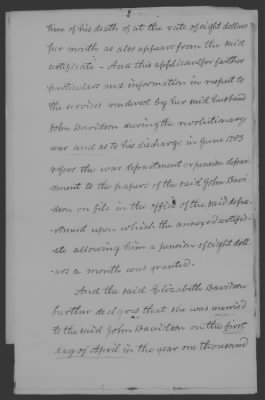 2
time of his death of at the rate of eight dollars
per month as also appears from the said
certificate - And this applicant for further
particulars and information in respect to
the services rendered by her said husband
John Davidson during the revolutionary
war and as to his discharge in June 1783
refers the war department or pension depar-
tment to the papers of the said John Davi-
dson on file in the office of the said depa-
rtment upon which the annexed certific-
ate allowing him a pension of eight doll-
ars a month was granted.
And the said Elizabeth Davidson
further declares that she was married
to the said John Davidson on the first
day of April in the year one thousand